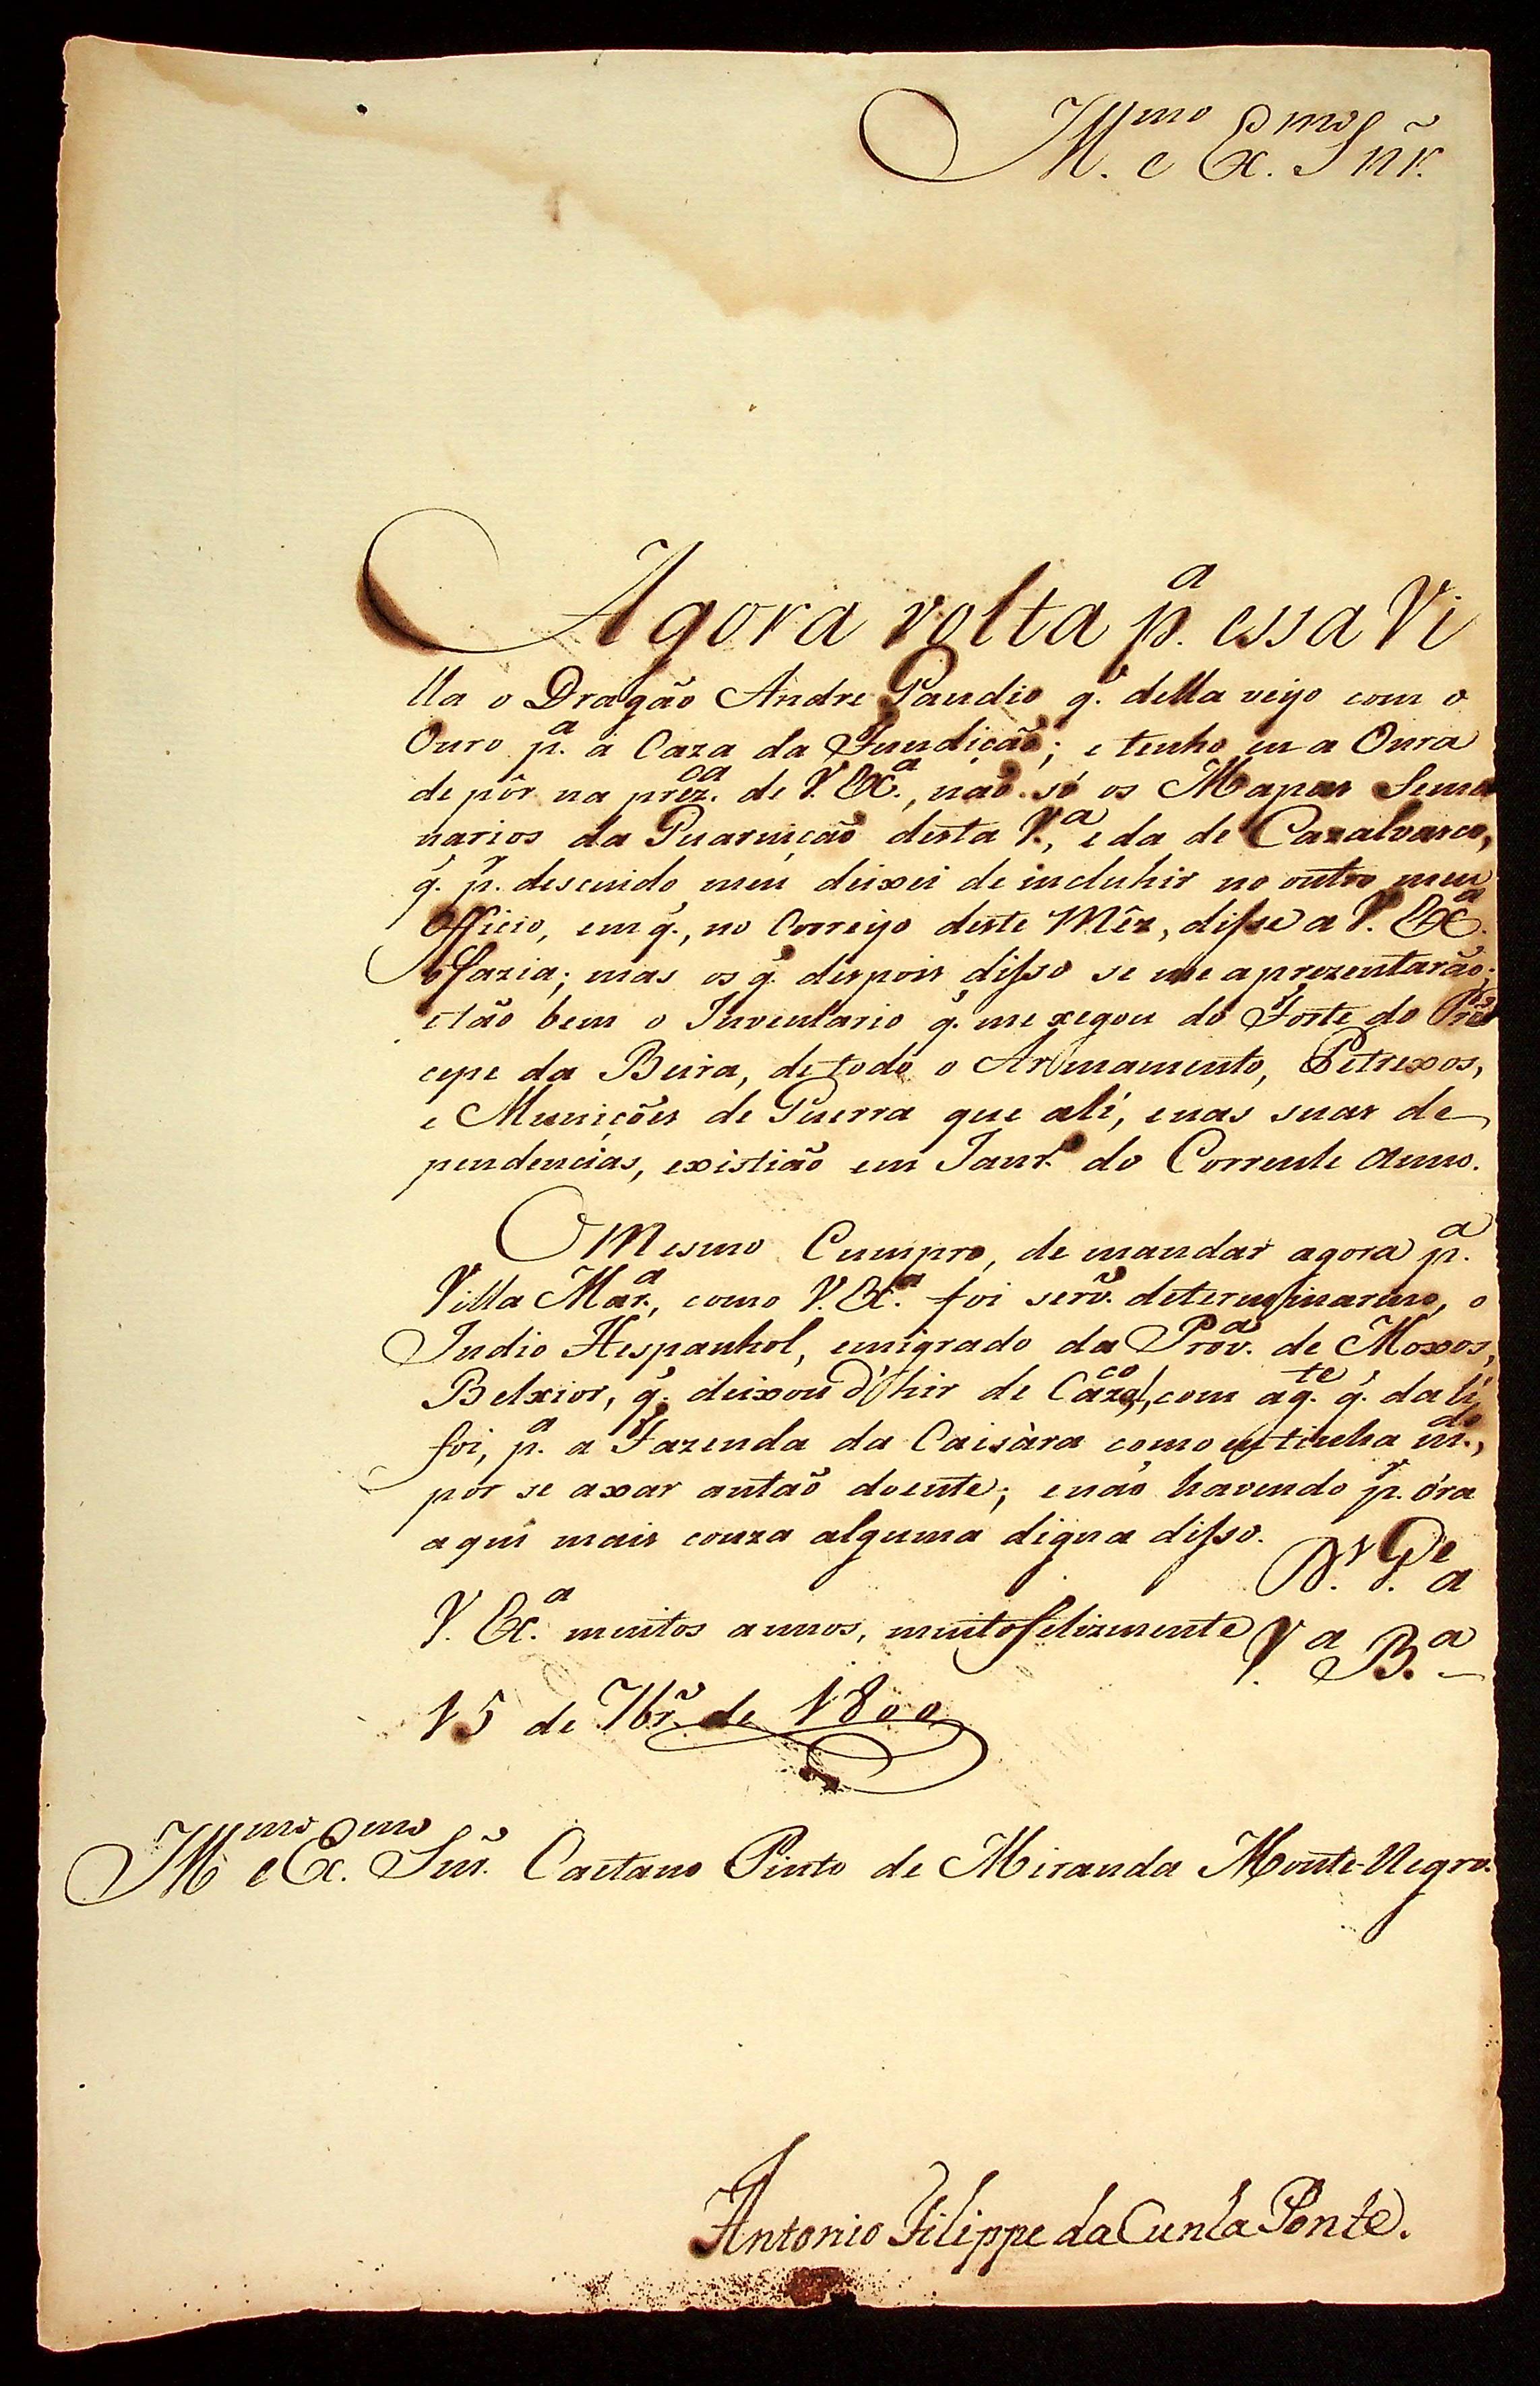 Ill.mo e Ex.mo Snr̃.
Agora volta p.a essa Vi
lla o Dragão Andre Gaudio q̃. della veyo com o
Ouro p.a a Caza da Fundição; e tenho eu a Onra
de pôr na prez.ca de V. Ex.a, não só os Mapas Sema
narios da Guarnição desta V.a, e da de Cazalvasco,
q̃. p.r descuido meu deixei de incluhir no outro meu
Officio, em q̃., no Correyo deste Mêz, disse a V. Ex.a
o fazia; mas os q̃. despois disso se me aprezentarão;
e tão bem o Inventario q̃. me xegou do Forte do Prin
cepe da Beira, de todo o Armamento, Petrexos,
e Munições de Guerra que alí, e nas suas de
pendencias, existião em Janr.o do Corrente Anno.
O Mesmo Cumpro, de mandar agora p.a
Villa Mar.a, como V. Ex.a foi serv.o determinarme, o
Indio Hespanhol, emigrado da Prov.a de Moxos,
Belxior, q̃. deixou d'hir de Cazal.co, com a g.te q̃. dalí
foi, p.a a Fazenda da Caisàra como eu tinha m.do,
por se axar antaõ doente; e não havendo p.r óra
aqui mais couza alguma digna disso. D.s G.e a
V. Ex.a muitos annos, muito felizmente V.a B.a
15 de 7br.o de 1800
Ill.mo e Ex.mo Snr̃. Caetano Pinto de Miranda Monte-Negro.
Antonio Filippe da Cunha Ponte.